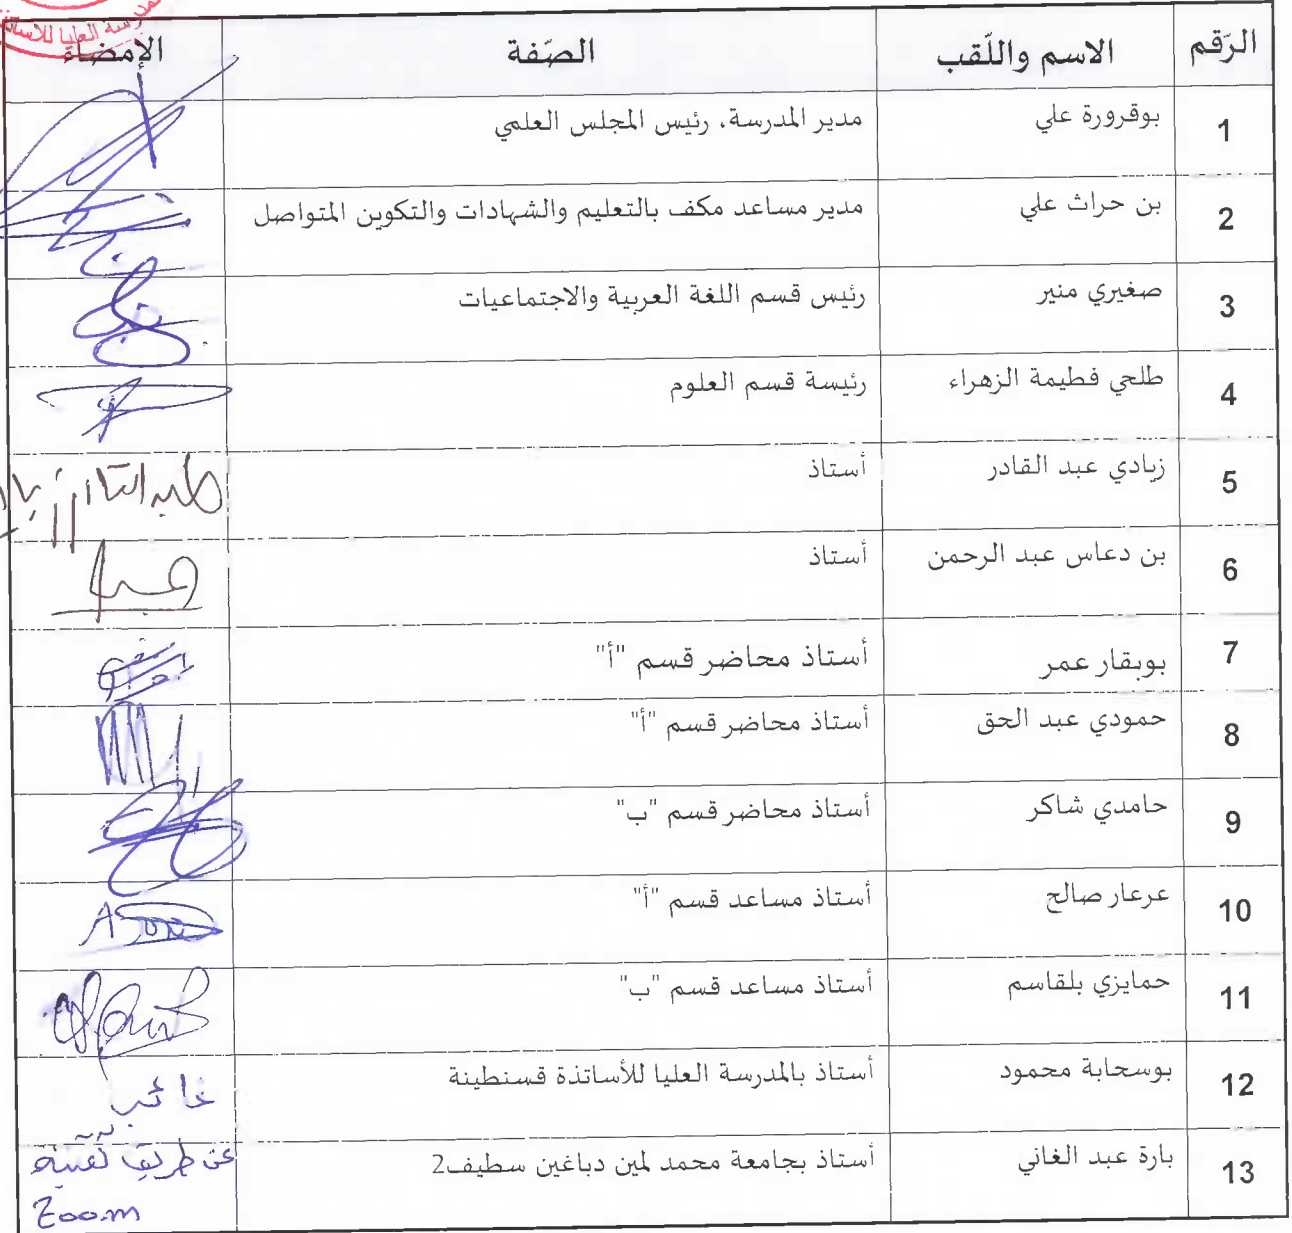 المدرسة العليا للأساتذة
الرّقم الاسم واللّقب الصّفة الإمضاء
1 بوقرورة علي مدير المدرسة، رئيس المجلس العلمي
2 بن حراث علي مدير مساعد مكف بالتعليم والشهادات والتكوين المتواصل
3 صغيري منير رئيس قسم اللغة العربية والاجتماعيات
4 طلحي فطيمة الزهراء رئيسة قسم العلوم
5 زيادي عبد القادر أستاذ
6 بن دعاس عبد الرحمن أستاذ
7 بوبقار عمر أستاذ محاضر قسم "أ"
8 حمودي عبد الحق أستاذ محاضر قسم "أ"
9 حامدي شاكر أستاذ محاضر قسم "ب"
10 عرعار صالح أستاذ مساعد قسم "أ"
11 حمايزي بلقاسم أستاذ مساعد قسم "ب"
12 بوسحابة محمود أستاذ بالمدرسة العليا للأساتذة قسنطينة غائب
13 بارة عبد الغاني أستاذ بجامعة محمد لمين دباغين سطيف2 عن طريق تقنية
Zoom